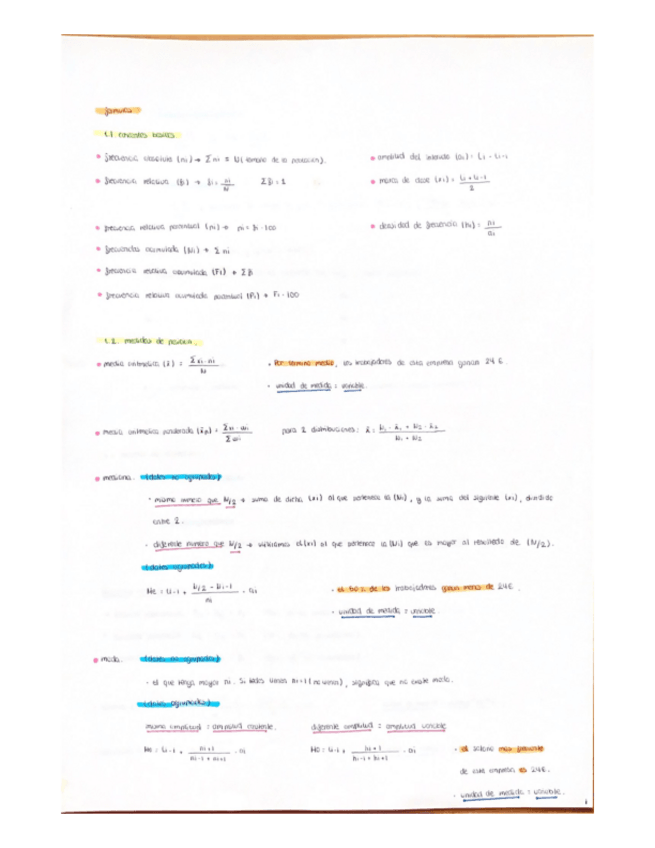 fórmulas
1.1 conceptos básicos.
• frecuencia absoluta (ni) → Σ ni = N (tamaño de la población).
• amplitud del intervalo (ai) = Li - Li-1
• frecuencia relativa (fi) → fi = ni/N Σ fi = 1
• marca de clase (xi) = Li + Li-1 / 2
• frecuencia relativa porcentual (pi) → pi = fi · 100
• densidad de frecuencia (hi) = ni/ai
• frecuencias acumulada (Ni) → Σ ni
• frecuencia relativa acumulada (Fi) → Σ fi
• frecuencia relativa acumulada porcentual (Pi) → Fi · 100
1.2. medidas de posición.
• media aritmética (x̄) = Σ xi · ni / N
• Por término medio, los trabajadores de esta empresa ganan 24 €.
• unidad de medida : variable.
• media aritmética ponderada (x̄p) = Σ xi · wi / Σ wi
para 2 distribuciones: x̄ = N1 · x̄1 + N2 · x̄2 / N1 + N2
• mediana. (datos no agrupados)
· mismo número que N/2 → suma de dicha (xi) al que pertenece la (Ni), y la suma del siguiente (xi), dividida
entre 2.
· diferente número que N/2 → utilizamos el (xi) al que pertenece la (Ni) que es mayor al resultado de (N/2).
(datos agrupados)
Me = Li-1 + N/2 - Ni-1 / ni · ai
• el 50% de los trabajadores ganan menos de 24€.
• unidad de medida : variable.
• moda. (datos no agrupados)
· el que tenga mayor ni. Si todos tienen ni=1 significa que no existe moda.
(datos agrupados)
misma amplitud : amplitud constante.
diferente amplitud : amplitud variable
Mo = Li-1 + ni+1 / ni-1 + ni+1 · ai
Mo = Li-1 + hi+1 / hi-1 + hi+1 · ai
• el salario más frecuente
de esta empresa es 24€.
• unidad de medida : variable.